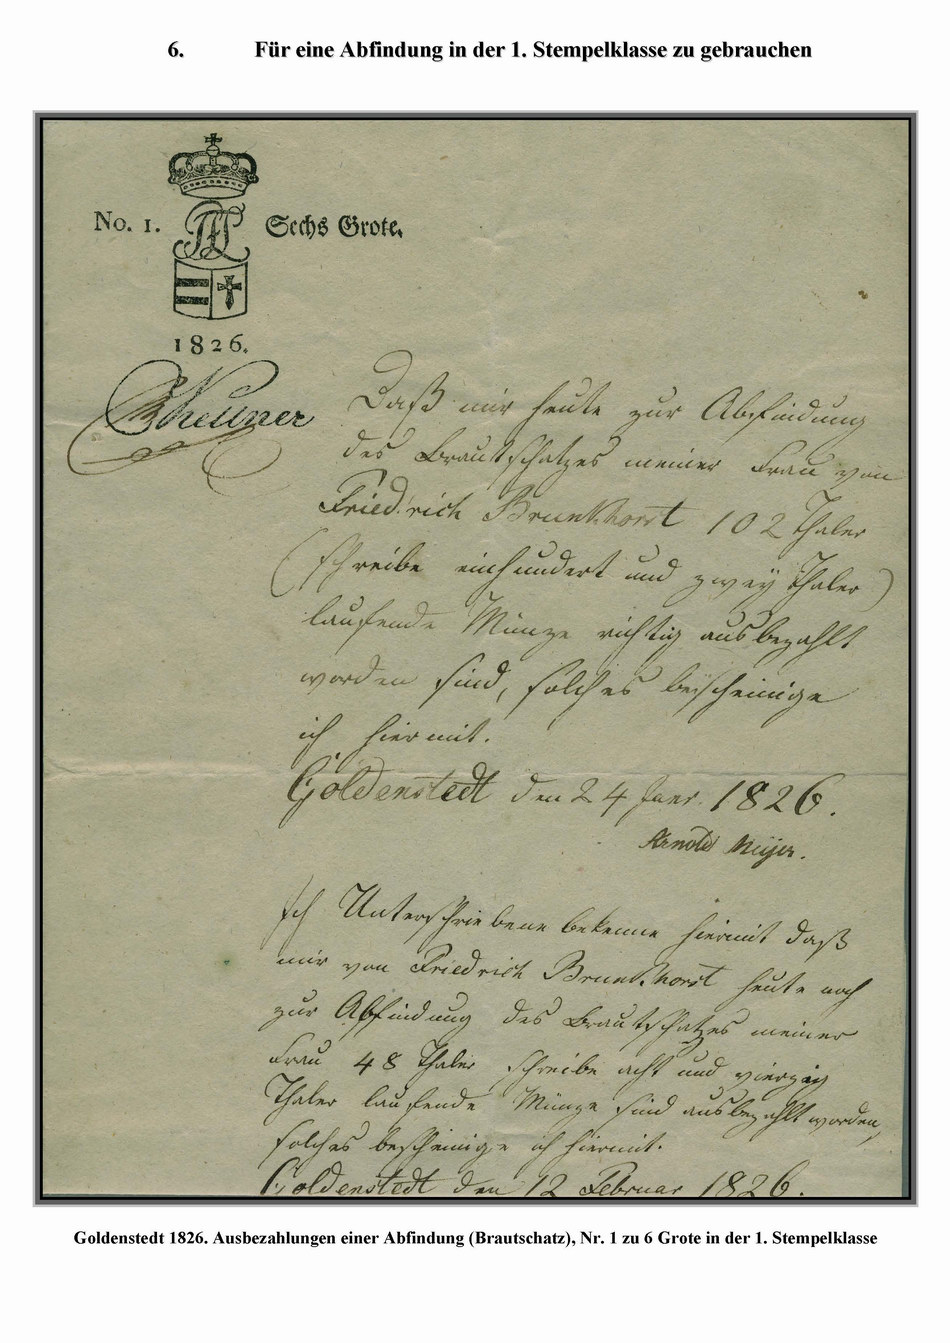 6. Für eine Abfindung in der 1. Stempelklasse zu gebrauchen
No. 1. Sechs Grote.
1826.
Daß mir heute zur Abfindung
des Brautschatzes meiner Frau von
Friedrich Brunkhorst 102 Thaler
(schreibe einhundert und zwey Thaler)
laufende Münze richtig ausbezahlt
worden sind, solches bescheinige
ich hiermit.
Goldenstedt den 24 Janr. 1826.
Arnold Meijer.
Ich Unterschriebene bekenne hiermit daß
mir von Friedrich Brunkhorst heute noch
zur Abfindung des Brautschatzes meiner
Frau 48 Thaler schreibe acht und vierzig
Thaler laufende Münze sind ausbezahlt worden,
solches bescheinige ich hiermit.
Goldenstedt den 12 Februar 1826.
Goldenstedt 1826. Ausbezahlungen einer Abfindung (Brautschatz), Nr. 1 zu 6 Grote in der 1. Stempelklasse